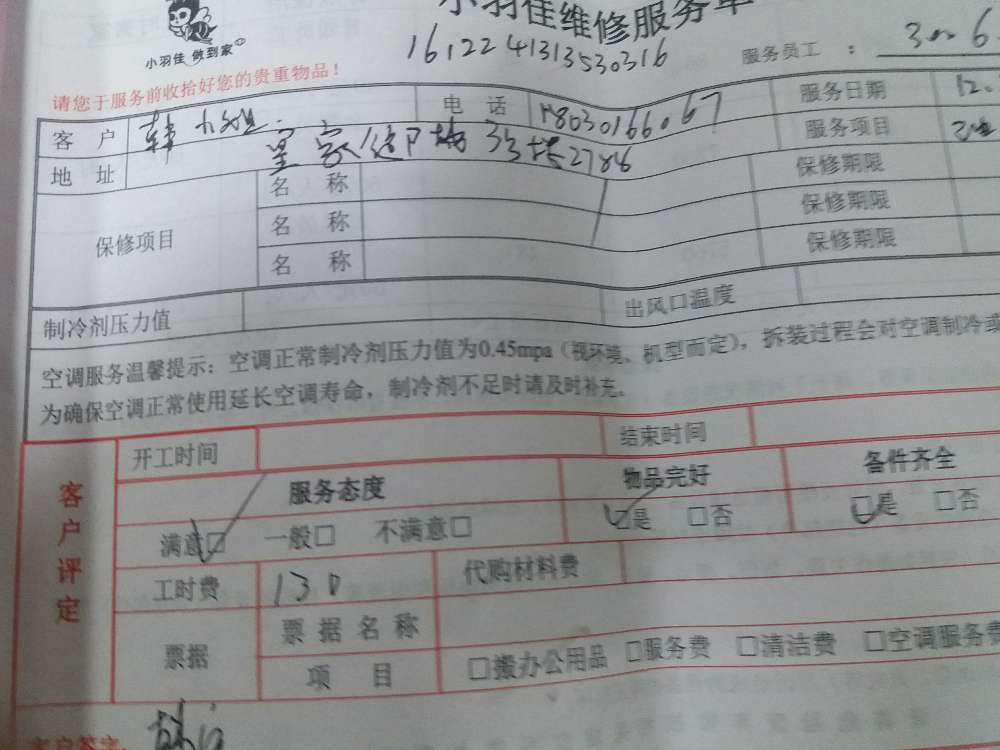 小羽佳维修服务单
小羽佳 做到家
1612241313530316
服务员工 ：
请您于服务前收拾好您的贵重物品！
客 户 韩小姐 电 话 服务日期 12.
地 址 服务项目
保修项目 名 称 保修期限
名 称 保修期限
名 称 保修期限
制冷剂压力值 出风口温度
空调服务温馨提示：空调正常制冷剂压力值为0.45mpa（视环境、机型而定），拆装过程会对空调制冷或
为确保空调正常使用延长空调寿命，制冷剂不足时请及时补充。
客户评定
开工时间 结束时间
服务态度 物品完好 备件齐全
满意□ 一般□ 不满意□ □是 □否 □是 □否
工时费 130 代购材料费
票据 票据名称
项 目 □搬办公用品 □服务费 □清洁费 □空调服务费
客户签字：